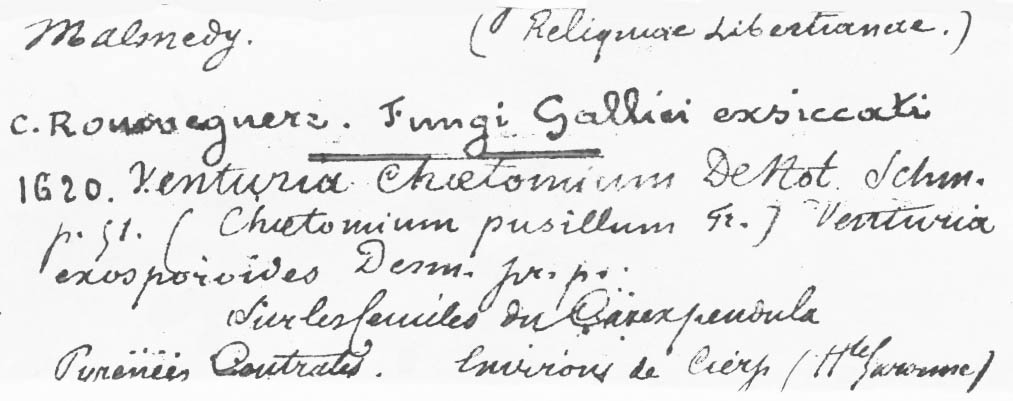 Malmedy. (Reliquiae Libertianae.)
C. Roumeguere. Fungi Gallici exsiccati
1620. Venturia Chœtomium DeNot. Schm.
p. 51. (Chœtomium pusillum Fr.) Venturia
exosporioides Desm. pr. p.
Sur les feuilles du Carex pendula
Pyrénées Centrales. Environs de Cierp (Hte Garonne)